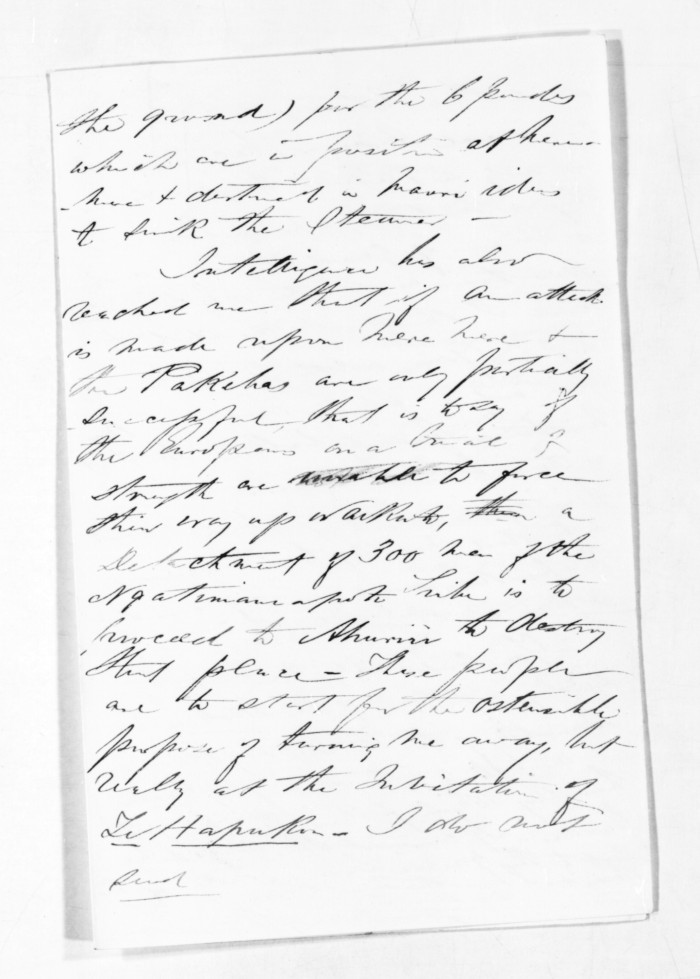 the ground) for the 6 pounders
which are in position at here-
-here & destined in Maori ideas
to sink the Steamer -
Intelligence has also
reached me that if an attack
is made upon Mere Mere &
the Pakehas are only partially
successful, that is to say if
the Europeans on a trial of
strength are unable to force
their way up Waikato, then a
Detachment of 300 men of the
Ngatimaniapoto Tribe is to
proceed to Ahuriri to destroy
that place - These people
are to start for the ostensible
purpose of turning me away, but
really at the Invitation of
Te Hapuku - I do not
send